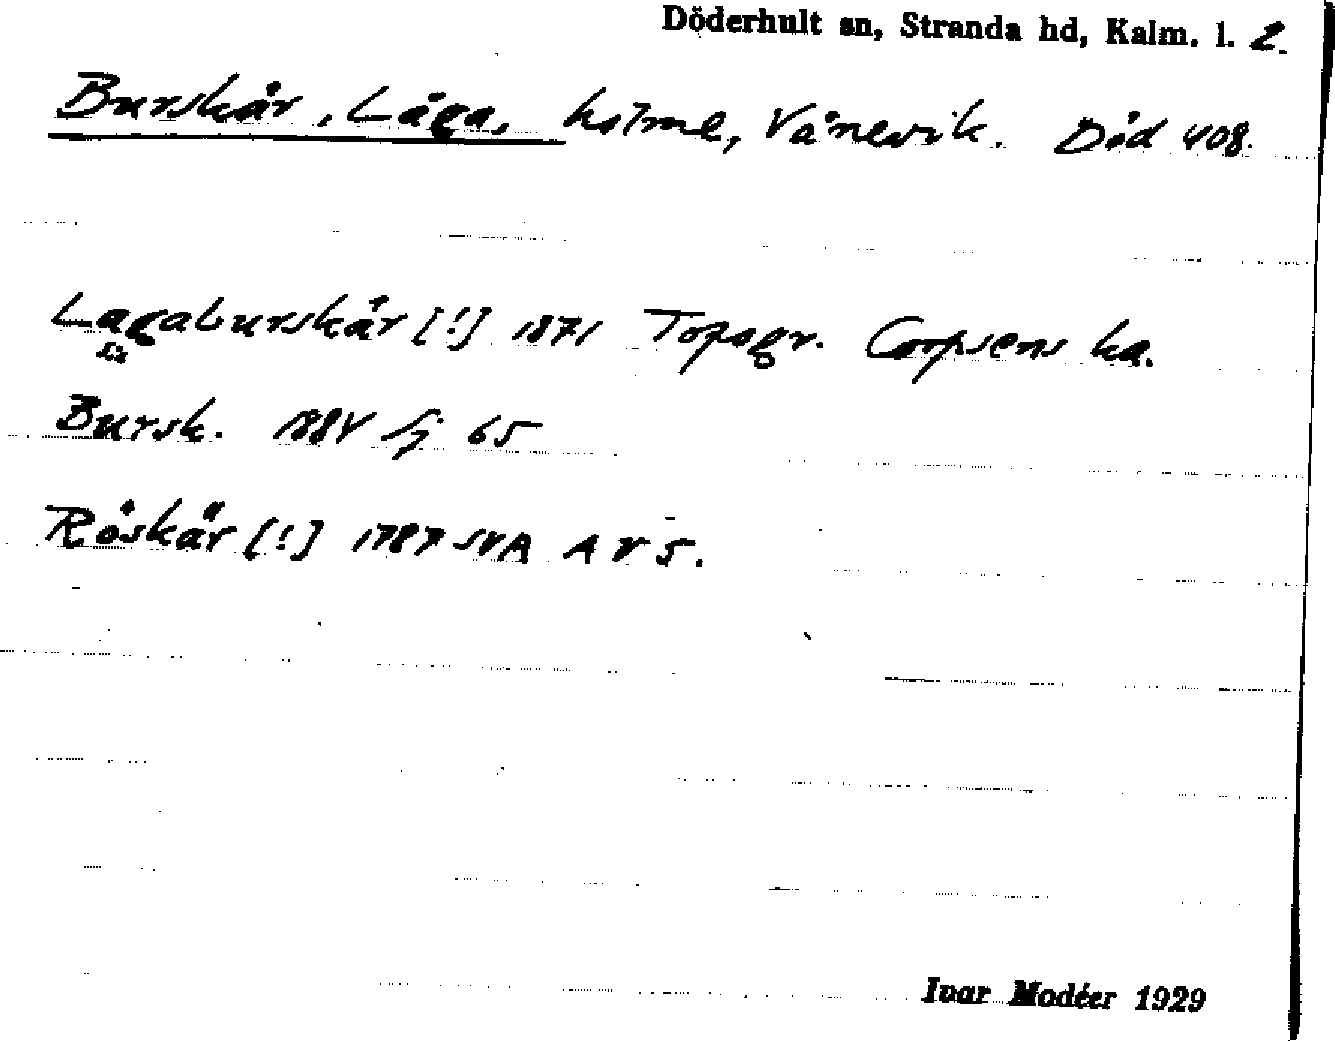 Döderhult sn, Stranda hd, Kalm. l. 2.
Burskär, Låga, holme, Vånevik. Död 408.
Lagaburskår [!] 1871 Topogr. Corpsens ka.
sic
Bursk. 65
Röskär [!] 1787 SVA A V 5.
Ivar Modéer 1929